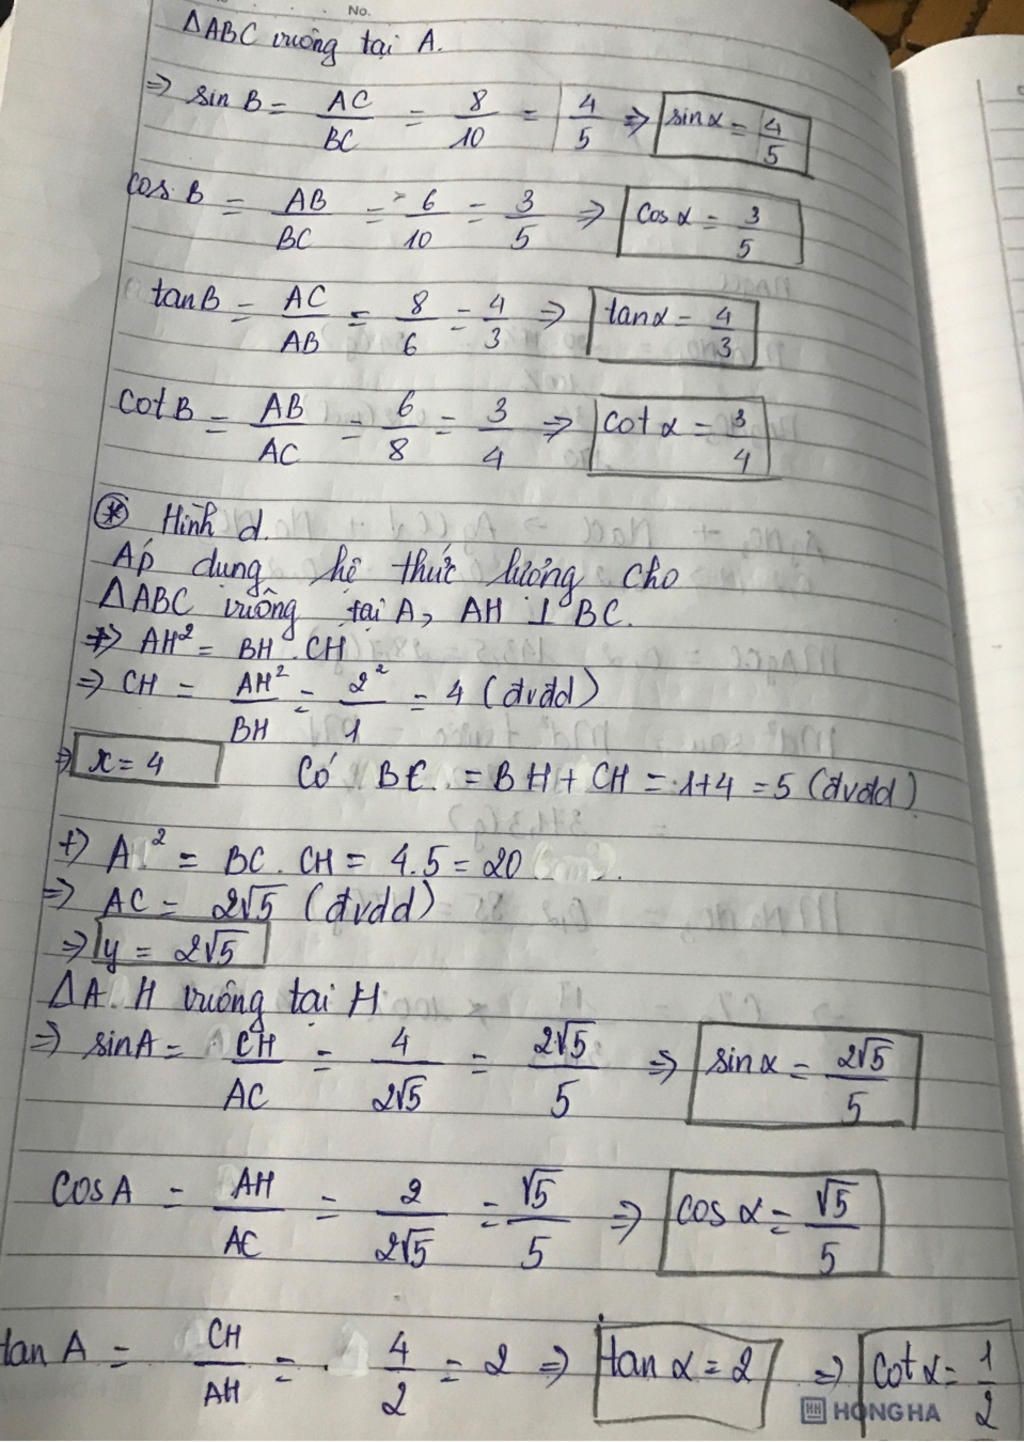 No.
ΔABC vuông tại A.
=> sin B = AC/BC = 8/10 = 4/5 => sin α = 4/5
cos B = AB/BC = 6/10 = 3/5 => cos α = 3/5
tan B = AC/AB = 8/6 = 4/3 => tan α = 4/3
cot B = AB/AC = 6/8 = 3/4 => cot α = 3/4
* Hình d.
Áp dung hệ thức lượng cho
ΔABC vuông tại A, AH ⊥ BC.
+) AH² = BH.CH
=> CH = AH²/BH = 2²/1 = 4 (đvđd)
=> x = 4 Có BC = BH + CH = 1+4 = 5 (đvđd)
+) A² = BC.CH = 4.5 = 20
=> AC = 2√5 (đvđd)
=> y = 2√5
ΔA H vuông tại H
=> sin A = CH/AC = 4/2√5 = 2√5/5 => sin α = 2√5/5
cos A = AH/AC = 2/2√5 = √5/5 => cos α = √5/5
tan A = CH/AH = 4/2 = 2 => tan α = 2 => cot α = 1/2
HONG HA